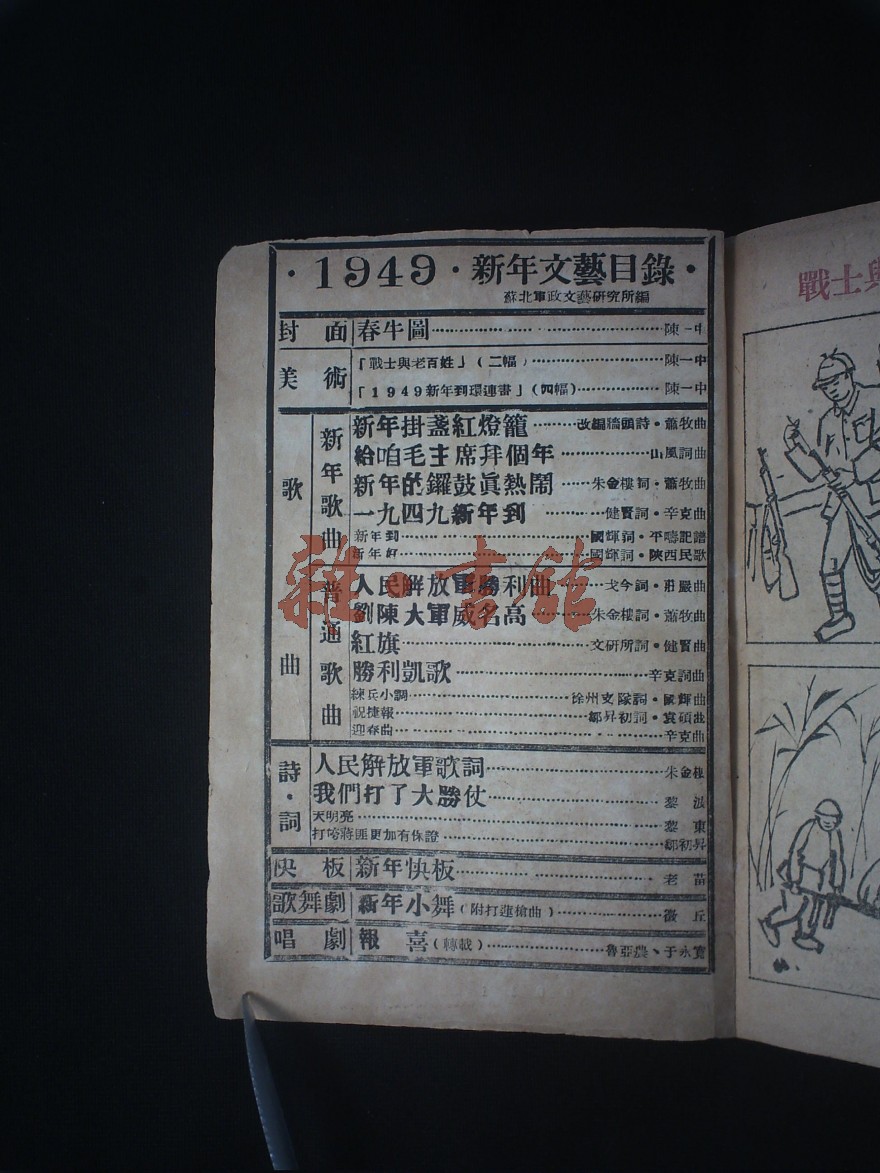 ·1949·新年文藝目錄·
蘇北軍政文藝研究所編
封面 春牛圖 陳一中
美術 「戰士與老百姓」(二幅) 陳一中
「1949新年到環連書」(四幅) 陳一中
歌曲
新年歌曲
新年掛盞紅燈籠 改編牆頭詩·蕭牧曲
給咱毛主席拜個年 山風詞曲
新年的鑼鼓眞熱鬧 朱金樓詞·蕭牧曲
一九四九新年到 健賢詞·辛克曲
新年到 國輝詞·平疇記譜
新年好 國輝詞·陝西民歌
普通歌曲
人民解放軍勝利曲 戈今詞·莊嚴曲
劉陳大軍威名高 朱金樓詞·蕭牧曲
紅旗 文研所詞·健賢曲
勝利凱歌 辛克詞曲
練兵小調 徐州支隊詞·國輝曲
祝捷報 鄒昇初詞·袁碩曲
迎春曲 辛克曲
詩·詞
人民解放軍歌詞 朱金樓
我們打了大勝仗 黎波
天明亮 黎東
打垮蔣匪更加有保證 鄒初昇
快板 新年快板 老苗
歌舞劇 新年小舞(附打蓮槍曲) 微丘
唱劇 報喜(轉載) 魯亞農、于永寬
戰士與
雜·書館